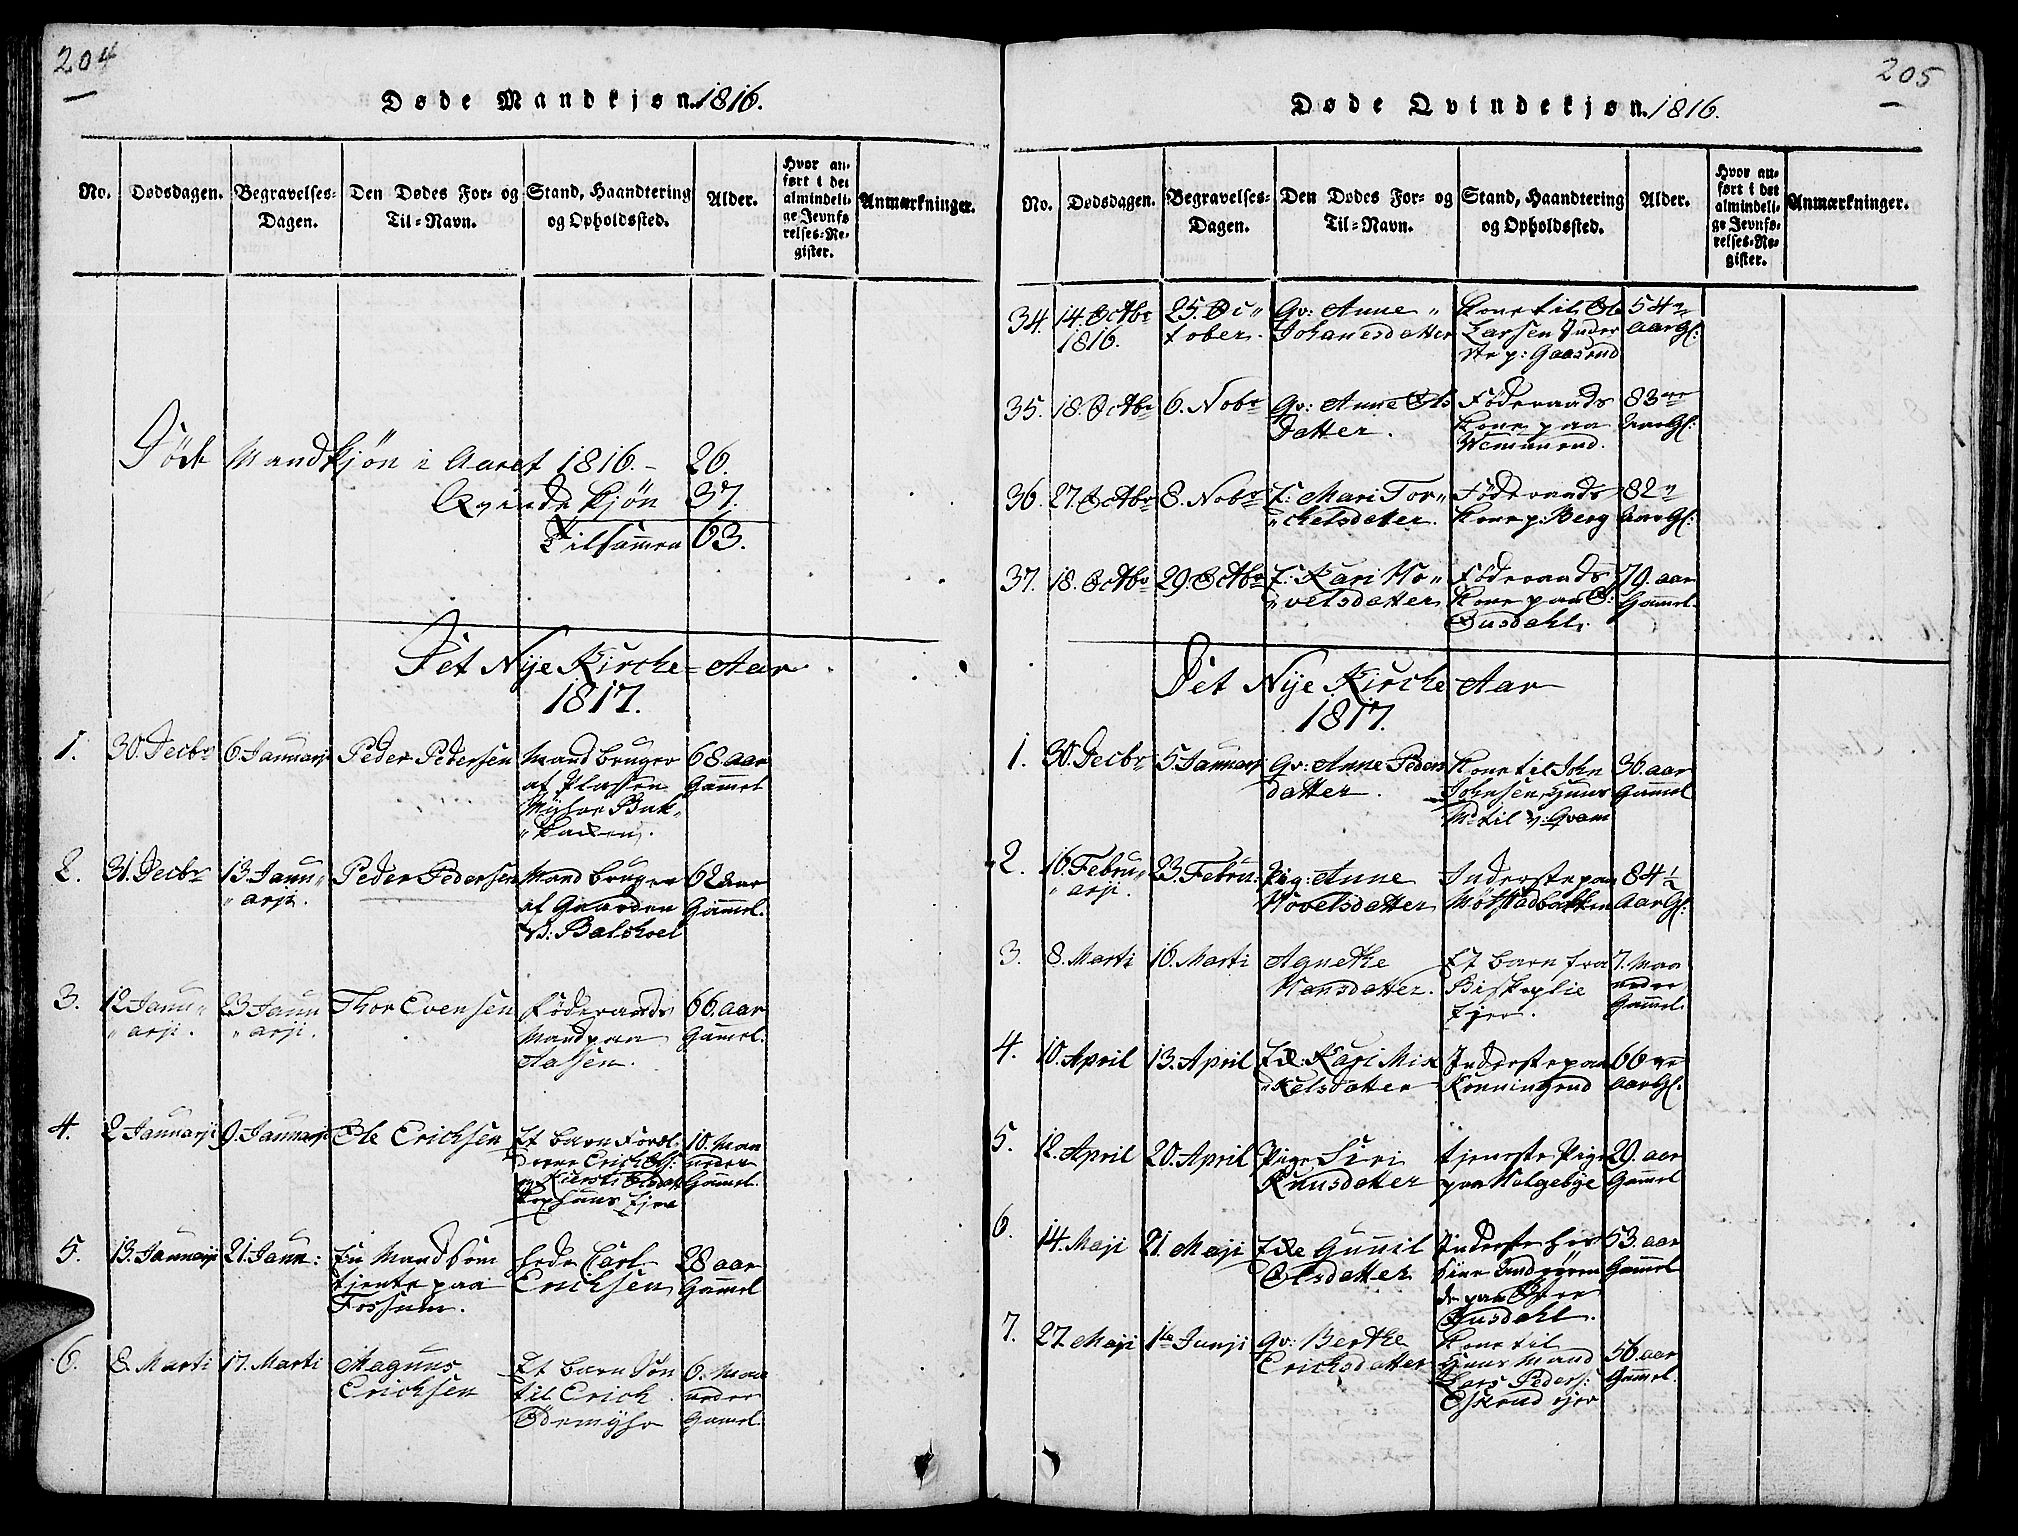 204
Døde Mandkjøn. 1816.
No.
Dødsdagen.
Begravelses-
Dagen.
Den Dødes For- og
Til-Navn.
Stand, Haandtering
og Opholdssted.
Alder.
Hvor an-
ført i det
almindeli-
ge Jevnfø-
relses-Re-
gister.
Anmærkninger.
Død Mandkjøn i Aaret 1816. - 26.
Qvindekjøn 37.
Tilsamen 63.
Det Nye Kirche-Aar
1817.
1.
30. Decbr
6. Januarji
Peder Pedersen
Mand bruger
af Pladsen
Myhre Bak-
"ken.
68. aar
Gamel
2.
31. Decbr
13. Janu"
"arji.
Peder Pedersen
Mand bruger
af Gaarden
V: Balchoel
62 aar
Gamel.
3.
12 Janu"
"arji.
23 Janu
"arji.
Thor Evensen
Føderaads
Mand paa
Aassen.
66. aar
Gamel.
4.
2 Januarji
9. Januarji
Ole Erichsen
Et barn Foræl-
drene Erich Ols:
og Kiersti Olsdat
Huus Ejer
10. Maa
neder
Gamel.
5.
13. Januarji
21. Janu:
En Mand som
tjente paa
Fossum.
hede Carl
Erichsen
28 aar
Gamel
6.
8. Marti
17. Marti
Magnus
Erichsen
Et barn Søn
til Erich
Ødemyhr
6. Maa
neder
Gamel.
205
Døde Qvindekjøn. 1816.
No.
Dødsdagen.
Begravelses-
Dagen.
Den Dødes For- og
Til-Navn.
Stand, Haandtering
og Opholdssted.
Alder.
Hvor an-
ført i det
almindeli-
ge Jevnfø-
relses-Re-
gister.
Anmærkninger.
34.
14. Octbr
1816.
25. Oc"
tober.
Gv: Anne "
Johanesdatter
Kone til Ole
Larsen Inder
ste p: Gaasrud
54 "
aar Gl:
35.
18. Octbr
6. Nobr
Gv: Anne Ols
Datter.
Føderaads
Kone paa
Wemunrud.
83 "
Aar Gl:
36.
27. Octbr
8. Nobr
E: Mari Tor"
"chelsdatter.
Føderaads
Kone p: Berg
82 "
Aar Gl:
37.
18. Octbr
29. Octbr
E: Kari Ho"
"velsdatter
Føderaads
Kone paa Ø:
Dusdahl.
79. aar
Gamel.
Det Nye Kirche-Aar
1817.
1.
30. Decbr
5. Januarj
Gv: Anne Peders
datter.
Kone til John
Johnsen, Huus
Md til V: Qvam
36. aar
Gamel
2.
16. Febru"
"arji.
23. Febru.
Pig: Anne
Hovelsdatter
Inderste paa
Møtstadbakken
84 ½
Aar Gl:
3.
8. Marti
16. Marti
Agnethe
Hansdatter.
Et barn fra
Biskoplie
Ejer.
7. Maa
neder
Gamel.
4.
10. April
13. April
Ek: Kari Mik
"kelsdatter
Inderste paa
Konningsrud
66 "
aar Gl.
5.
12. April
20. April
Pige Siri
Knusdatter
tjeneste Pige
paa Helgebye
29. aar
Gamel
6.
14. Maji
21. Maji
Eke Gunil
Olsdatter
Inderste hos
sine Andrørende
paa Østre
Dusdahl.
53. aar
Gamel
7.
27. Maji
1te Junji
Gv: Berthe
Erichsdatter
Kone til
Huus Mand
Lars Peders:
Eskrud ejer
56. aar
Gamel.